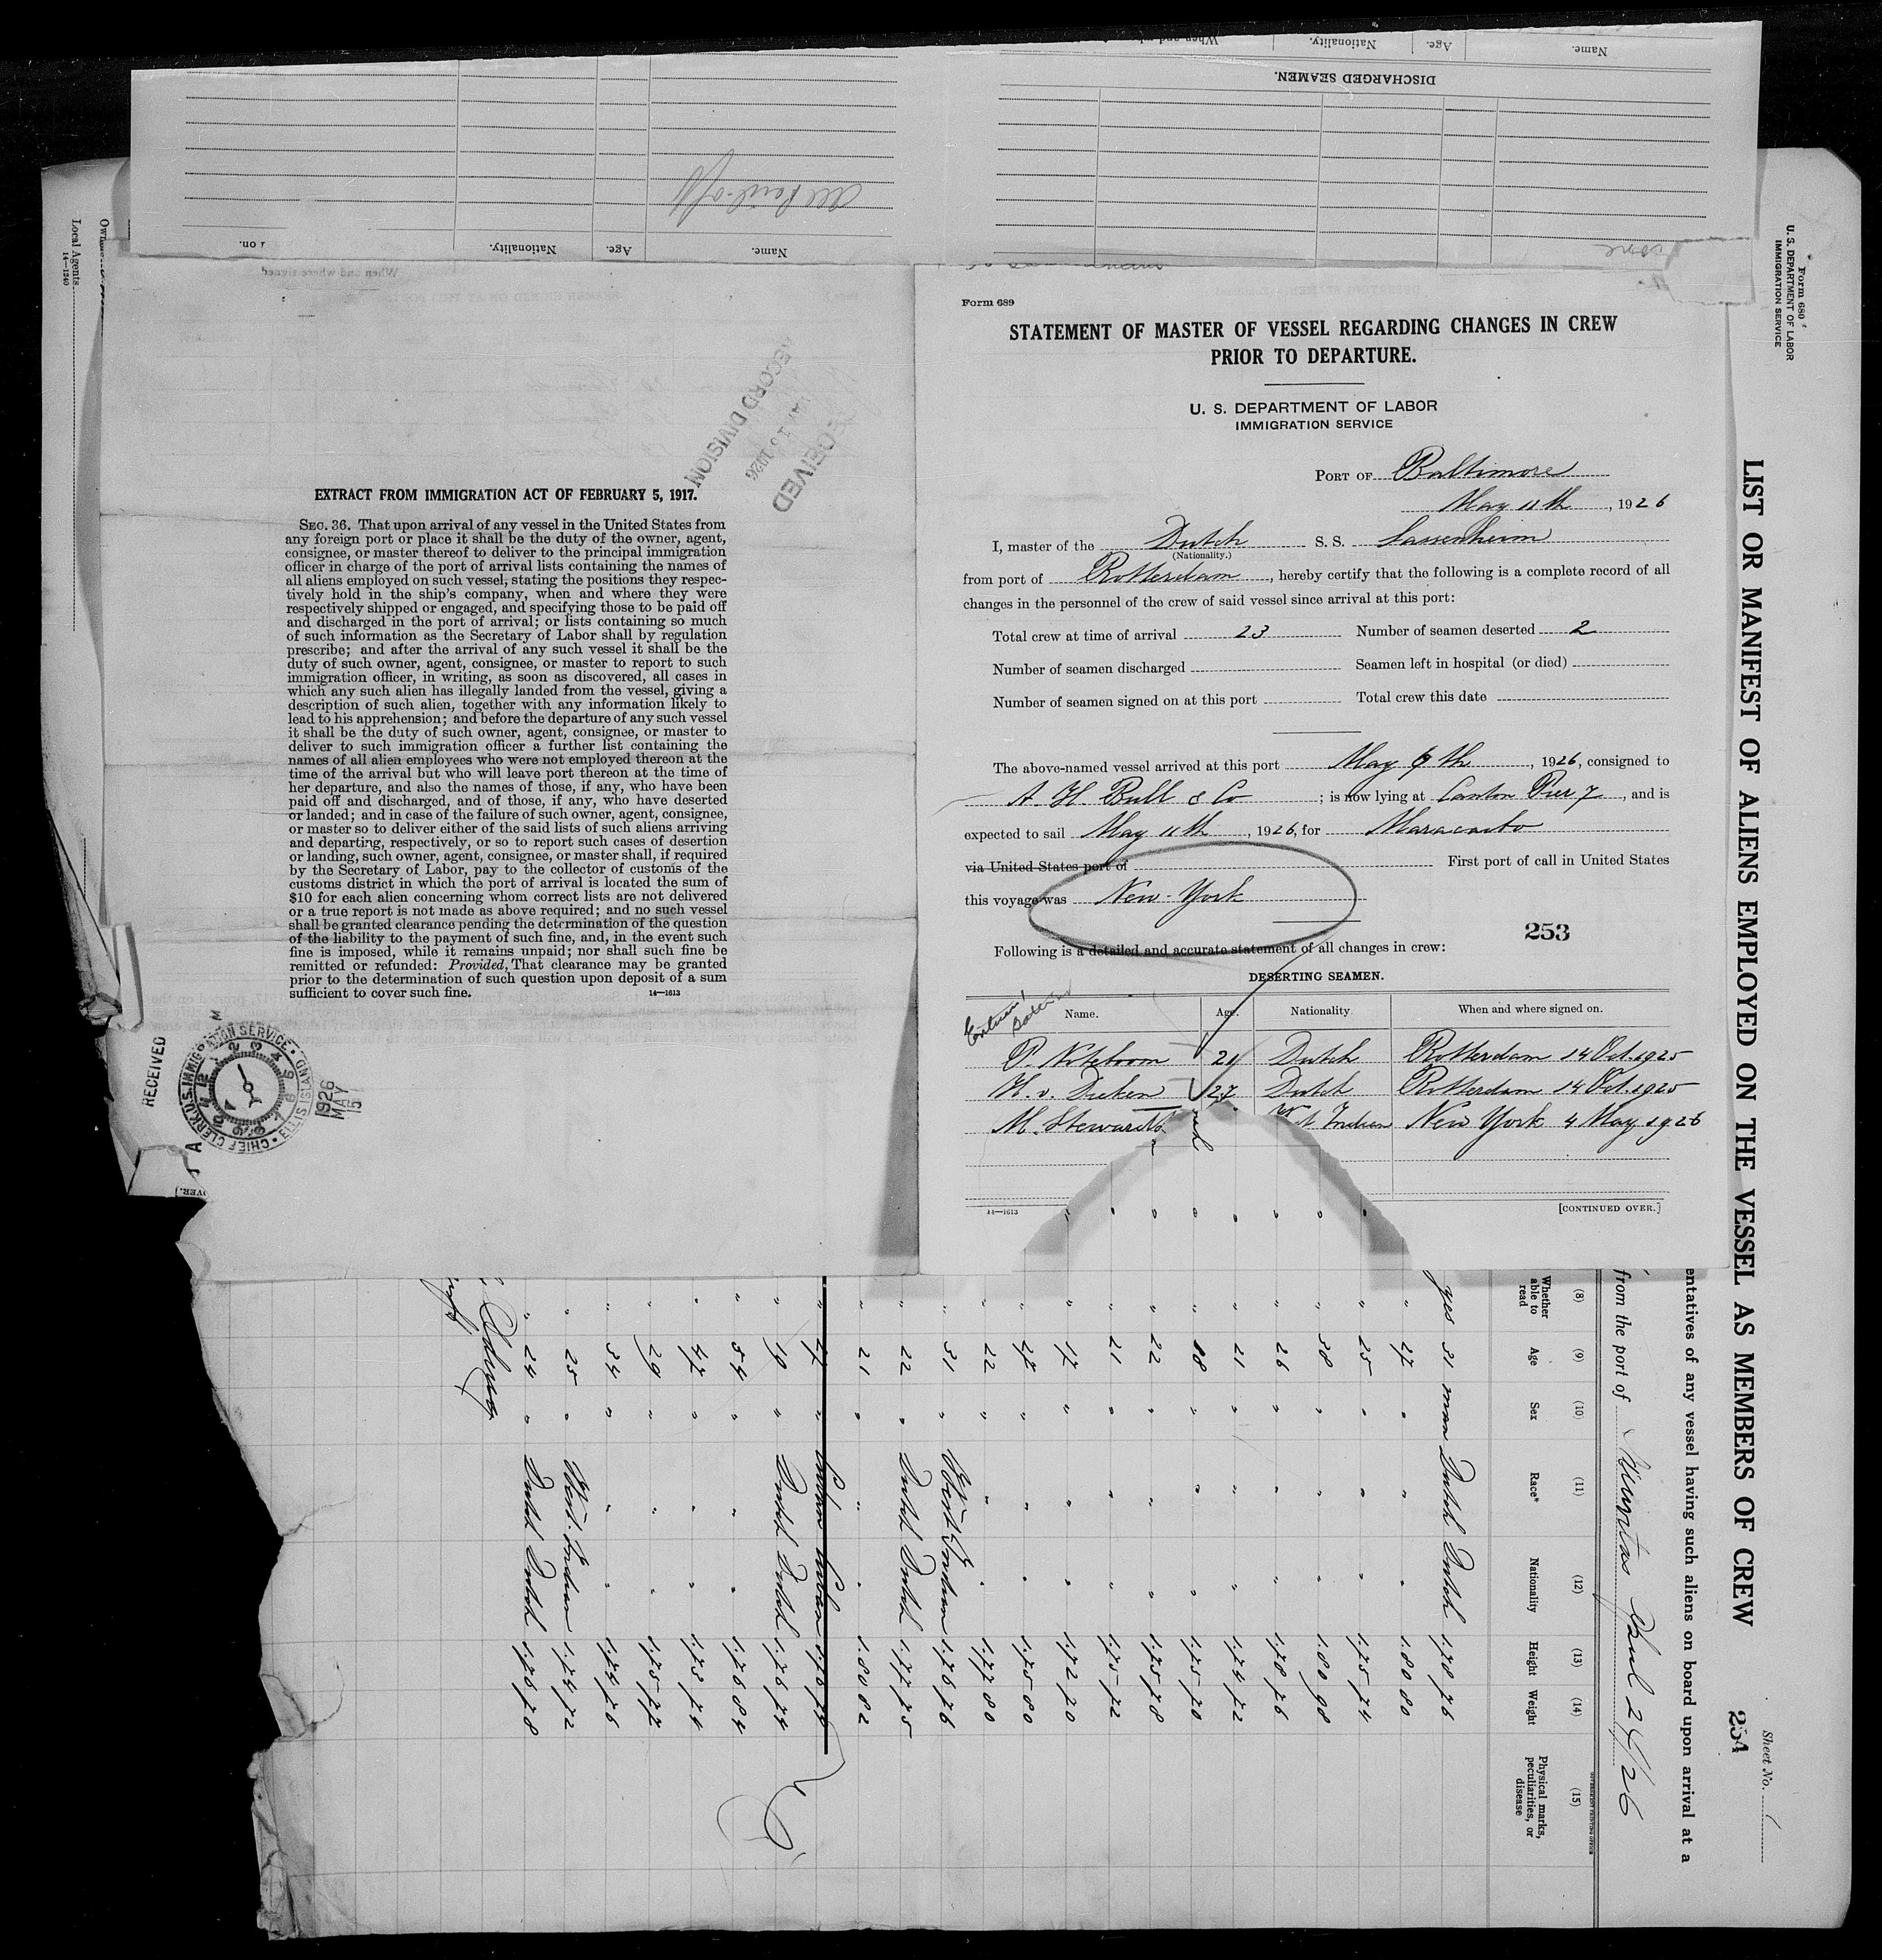 Name.
Age.
Nationality.
When and wh
DISCHARGED SEAMEN.
Name.
Age.
Nationality.
on.
All Paid-off
Local Agents
14—1240
When and where signed
RECEIVED
1926
RECORD DIVISION
EXTRACT FROM IMMIGRATION ACT OF FEBRUARY 5, 1917.
SEC. 36. That upon arrival of any vessel in the United States from
any foreign port or place it shall be the duty of the owner, agent,
consignee, or master thereof to deliver to the principal immigration
officer in charge of the port of arrival lists containing the names of
all aliens employed on such vessel, stating the positions they respec-
tively hold in the ship's company, when and where they were
respectively shipped or engaged, and specifying those to be paid off
and discharged in the port of arrival; or lists containing so much
of such information as the Secretary of Labor shall by regulation
prescribe; and after the arrival of any such vessel it shall be the
duty of such owner, agent, consignee, or master to report to such
immigration officer, in writing, as soon as discovered, all cases in
which any such alien has illegally landed from the vessel, giving a
description of such alien, together with any information likely to
lead to his apprehension; and before the departure of any such vessel
it shall be the duty of such owner, agent, consignee, or master to
deliver to such immigration officer a further list containing the
names of all alien employees who were not employed thereon at the
time of the arrival but who will leave port thereon at the time of
her departure, and also the names of those, if any, who have been
paid off and discharged, and of those, if any, who have deserted
or landed; and in case of the failure of such owner, agent, consignee,
or master so to deliver either of the said lists of such aliens arriving
and departing, respectively, or so to report such cases of desertion
or landing, such owner, agent, consignee, or master shall, if required
by the Secretary of Labor, pay to the collector of customs of the
customs district in which the port of arrival is located the sum of
$10 for each alien concerning whom correct lists are not delivered
or a true report is not made as above required; and no such vessel
shall be granted clearance pending the determination of the question
of the liability to the payment of such fine, and, in the event such
fine is imposed, while it remains unpaid; nor shall such fine be
remitted or refunded: Provided, That clearance may be granted
prior to the determination of such question upon deposit of a sum
sufficient to cover such fine.
14—1613
RECEIVED
CHIEF CLERK U.S. IMMIGRATION SERVICE · ELLIS ISLAND
1926
MAY
15
Form 689
STATEMENT OF MASTER OF VESSEL REGARDING CHANGES IN CREW
PRIOR TO DEPARTURE.
U. S. DEPARTMENT OF LABOR
IMMIGRATION SERVICE
PORT OF Baltimore
May 11th, 1926
I, master of the Dutch S. S. Sassenheim
(Nationality.)
from port of Rotterdam, hereby certify that the following is a complete record of all
changes in the personnel of the crew of said vessel since arrival at this port:
Total crew at time of arrival 23 Number of seamen deserted 2
Number of seamen discharged Seamen left in hospital (or died)
Number of seamen signed on at this port Total crew this date
The above-named vessel arrived at this port May 7th, 1926, consigned to
A. H. Bull & Co; is now lying at Canton Pier 7, and is
expected to sail May 11th, 1926, for Maracaibo
via United States port of First port of call in United States
this voyage was New-York
253
Following is a detailed and accurate statement of all changes in crew:
DESERTING SEAMEN.
Name. Age. Nationality. When and where signed on.
P. Noteboom 21 Dutch Rotterdam 14 Oct. 1925
H. v. Dieken 27 Dutch Rotterdam 14 Oct. 1925
M. Steward West Indian New York 4 May 1926
14—1613
[CONTINUED OVER.]
Form 680
U. S. DEPARTMENT OF LABOR
IMMIGRATION SERVICE
LIST OR MANIFEST OF ALIENS EMPLOYED ON THE VESSEL AS MEMBERS OF CREW
Sheet No.
254
entatives of any vessel having such aliens on board upon arrival at a
from the port of Nuevitas April 29/26
(8) (9) (10) (11) (12) (13) (14) (15)
Whether able to read Age Sex Race* Nationality Height Weight Physical marks, peculiarities, or disease
yes 31 man Dutch Dutch 1.78 76
" 27 " " " 1.80 80
" 25 " " " 1.75 74
" 38 " " " 1.80 98
" 26 " " " 1.78 76
" 21 " " " 1.74 72
" 18 " " " 1.75 70
" 22 " " " 1.75 78
" 21 " " " 1.75 72
" 17 " " " 1.72 70
" 27 " " " 1.75 80
" 22 " " " 1.77 80
" 31 " West Indian 1.76 76
" 22 " Dutch Dutch 1.77 75
" 21 " " " 1.80 82
" 27 " Cuban Cuban 1.76 74
" 19 " Dutch Dutch 1.76 74
" 54 " " " 1.76 84
" 47 " " " 1.73 74
" 29 " " " 1.75 77
" 34 " " " 1.74 76
" 25 " West. Indian 1.74 72
" 24 " Dutch Dutch 1.76 78